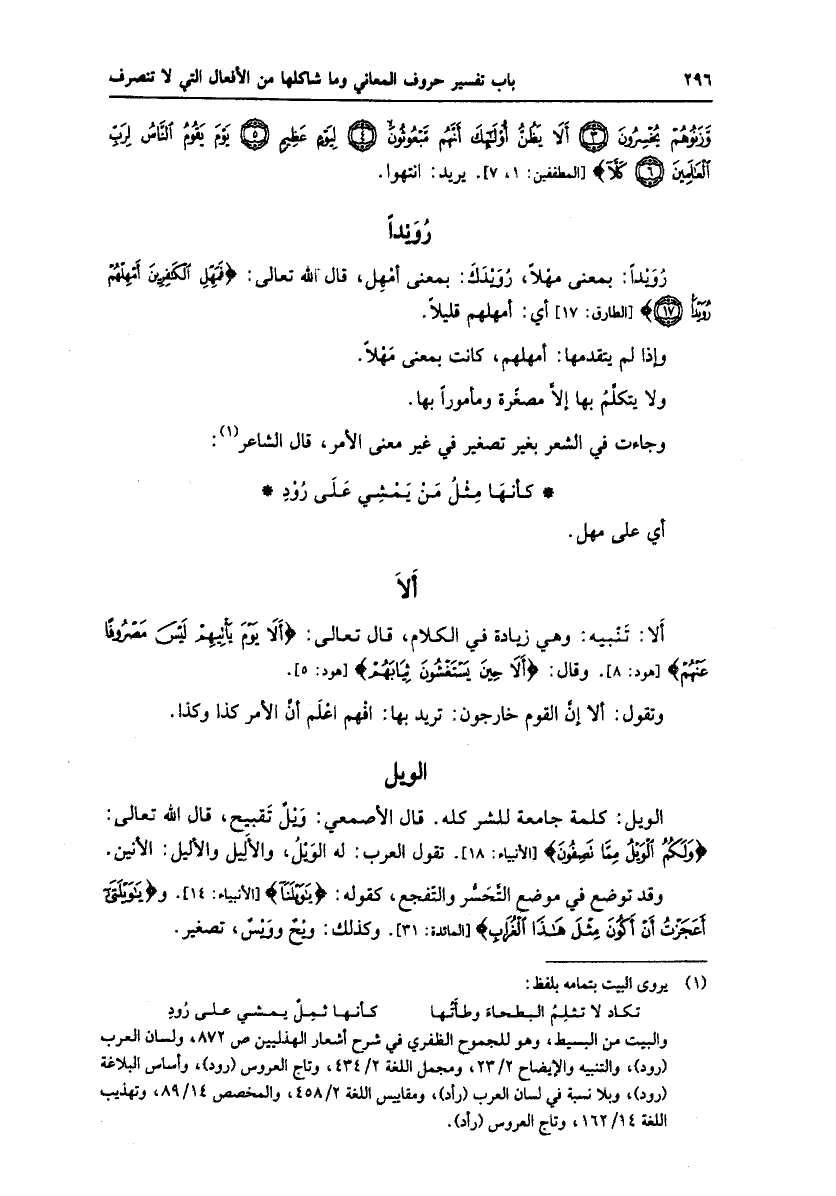 ٢٩٦ باب تفسير حروف المعاني وما شاكلها من الأفعال التي لا تتصرف
وَّزَنُوهُمْ يُخْسِرُونَ ﴿٣﴾ أَلَا يَظُنُّ أُوْلَٰٓئِكَ أَنَّهُم مَّبْعُوثُونَ ﴿٤﴾ لِيَوْمٍ عَظِيمٍ ﴿٥﴾ يَوْمَ يَقُومُ ٱلنَّاسُ لِرَبِّ
ٱلْعَٰلَمِينَ ﴿٦﴾ كَلَّآ﴾ [المطففين: ١، ٧]. يريد: انتهوا.
رُوَيْداً
رُوَيْداً: بمعنى مهْلاً، رُوَيْدَكَ: بمعنى أمْهِل، قال الله تعالى: ﴿فَمَهِّلِ ٱلْكَٰفِرِينَ أَمْهِلْهُمْ
رُوَيْدًۢا ﴿١٧﴾﴾ [الطارق: ١٧] أي: أمهلهم قليلاً.
وإذا لم يتقدمها: أمهلهم، كانت بمعنى مَهْلاً.
ولا يتكلَّمُ بها إلاَّ مصغّرة ومأموراً بها.
وجاءت في الشعر بغير تصغير في غير معنى الأمر، قال الشاعر(١):
* كـأنـهَـا مِـثْـلُ مَـنْ يَـمْـشِـي عَـلَـى رُوْدِ *
أي على مهل.
أَلاَ
أَلا: تَنْبيه: وهي زيادة في الكلام، قال تعالى: ﴿أَلَا يَوْمَ يَأْتِيهِمْ لَيْسَ مَصْرُوفًا
عَنْهُمْ﴾ [هود: ٨]. وقال: ﴿أَلَا حِينَ يَسْتَغْشُونَ ثِيَابَهُمْ﴾ [هود: ٥].
وتقول: ألا إنَّ القوم خارجون: تريد بها: افْهم اعْلَم أنَّ الأمر كذا وكذا.
الويل
الويل: كلمة جامعة للشر كله. قال الأصمعي: وَيْلٌ تَقبيح، قال الله تعالى:
﴿وَلَكُمُ ٱلْوَيْلُ مِمَّا تَصِفُونَ﴾ [الأنبياء: ١٨]. تقول العرب: له الوَيْلُ، والأَلِيل والأليل: الأنين.
وقد توضع في موضع التَّحَسُّر والتَّفجع، كقوله: ﴿يَٰوَيْلَنَآ﴾ [الأنبياء: ١٤]. و﴿يَٰوَيْلَتَىٰٓ
أَعَجَزْتُ أَنْ أَكُونَ مِثْلَ هَٰذَا ٱلْغُرَابِ﴾ [المائدة: ٣١]. وكذلك: ويْحٌ وويْسٌ، تصغير.
(١) يروى البيت بتمامه بلفظ:
تـكـاد لا تـثـلِـمُ الـبـطـحـاءَ وطـأَتُـهـا كـأنـهـا ثـمِـلٌ يـمـشـي عـلـى رُودِ
والبيت من البسيط، وهو للجموح الظفري في شرح أشعار الهذليين ص ٨٧٢، ولسان العرب
(رود)، والتنبيه والإيضاح ٢/ ٢٣، ومجمل اللغة ٢/ ٤٣٤، وتاج العروس (رود)، وأساس البلاغة
(رود)، وبلا نسبة في لسان العرب (رأد)، ومقاييس اللغة ٢/ ٤٥٨، والمخصص ١٤/ ٨٩، وتهذيب
اللغة ١٤/ ١٦٢، وتاج العروس (رأد).